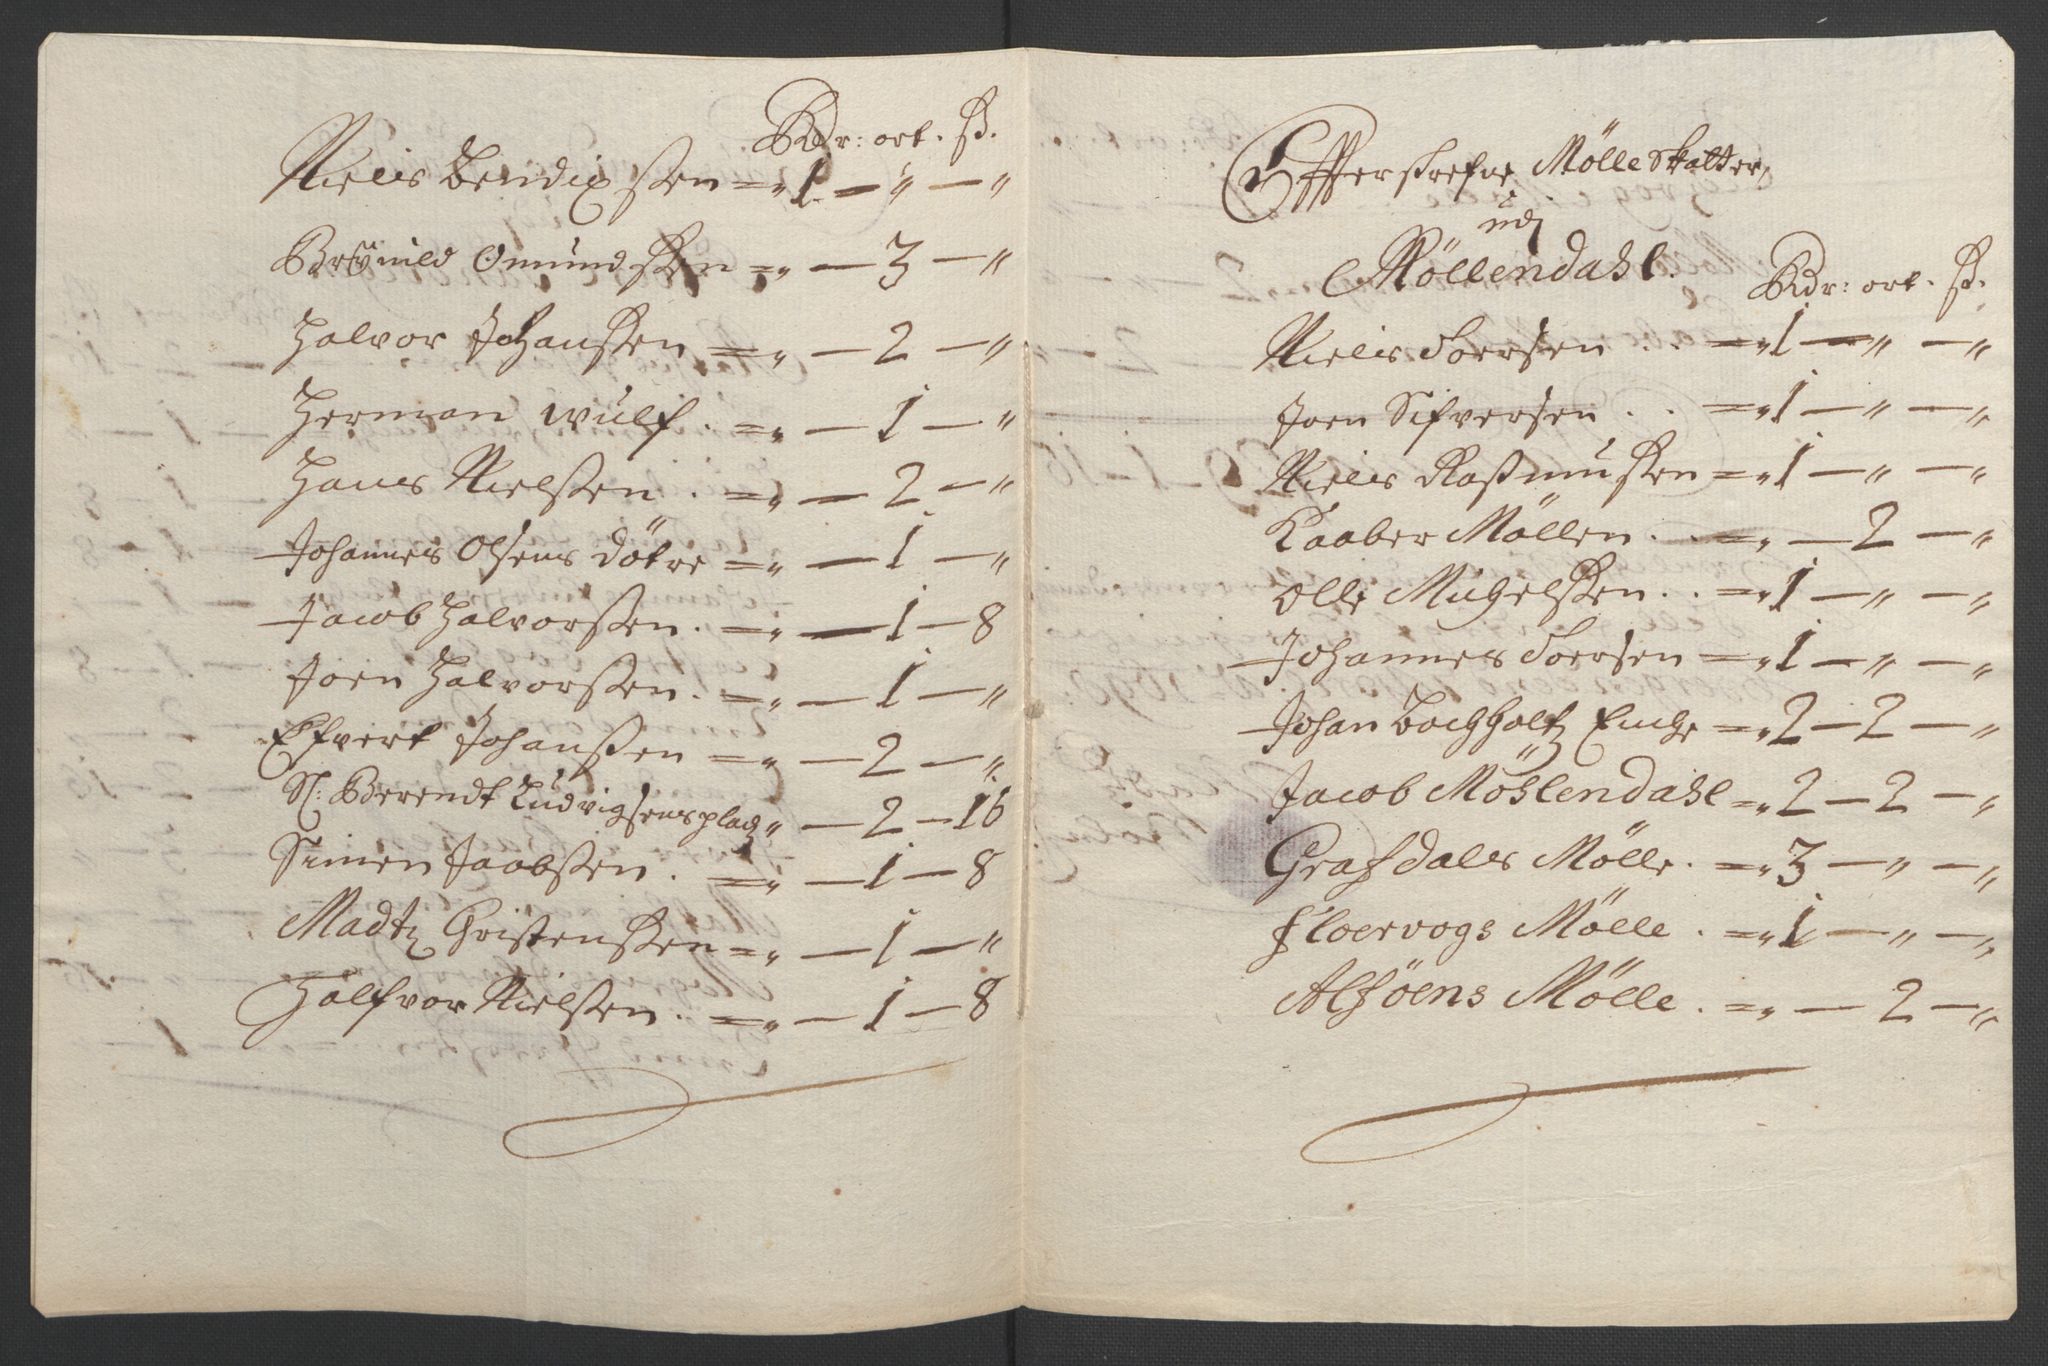 Rdr: ort. ß.
Niels Bendixssen = „ 1 — „ — „
Brönild Omundssen = „ — 3 — „
Halvor Johanssen = „ — 2 — „
Herman Wulf . = „ — 1 — „
Hans Nielssen . = „ — 2 — „
Johannes Olsens Dötre = „ — 1 — „
Jacob Halvorssen . = „ — 1 — 8
Joen Halvorssen . = „ — 1 — „
Efvert Johanssen = „ — 2 — „
Sl: Berendt Ludvigsens platz „ — 2 — 16
Simen Jaabssen . = „ — 1 — 8
Madtz Christenssen = „ — 1 — „
Halfvor Nielssen . = „ — 1 — 8
Effterskrefne Mölle Skatter,
udj
Möllendahl.
Rdr: ort. ß.
Niels Soersen . . = „ 1 — „ — „
Joen Sifversen . . = „ 1 — „ — „
Niels Rassmussen = „ 1 — „ — „
Kaaber Möllen . . = „ — 2 — „
Olle Michelssen . . = „ 1 — „ — „
Johannes Soersen = „ 1 — „ — „
Johan Bochholtz Encke = „ 2 — 2 — „
Jacob Möhlendahl = „ 2 — 2 — „
Grafdals Mölle . = „ 3 — „ — „
Floervogs Mölle . = „ 1 — „ — „
Alföens Mölle . = „ — 2 — „